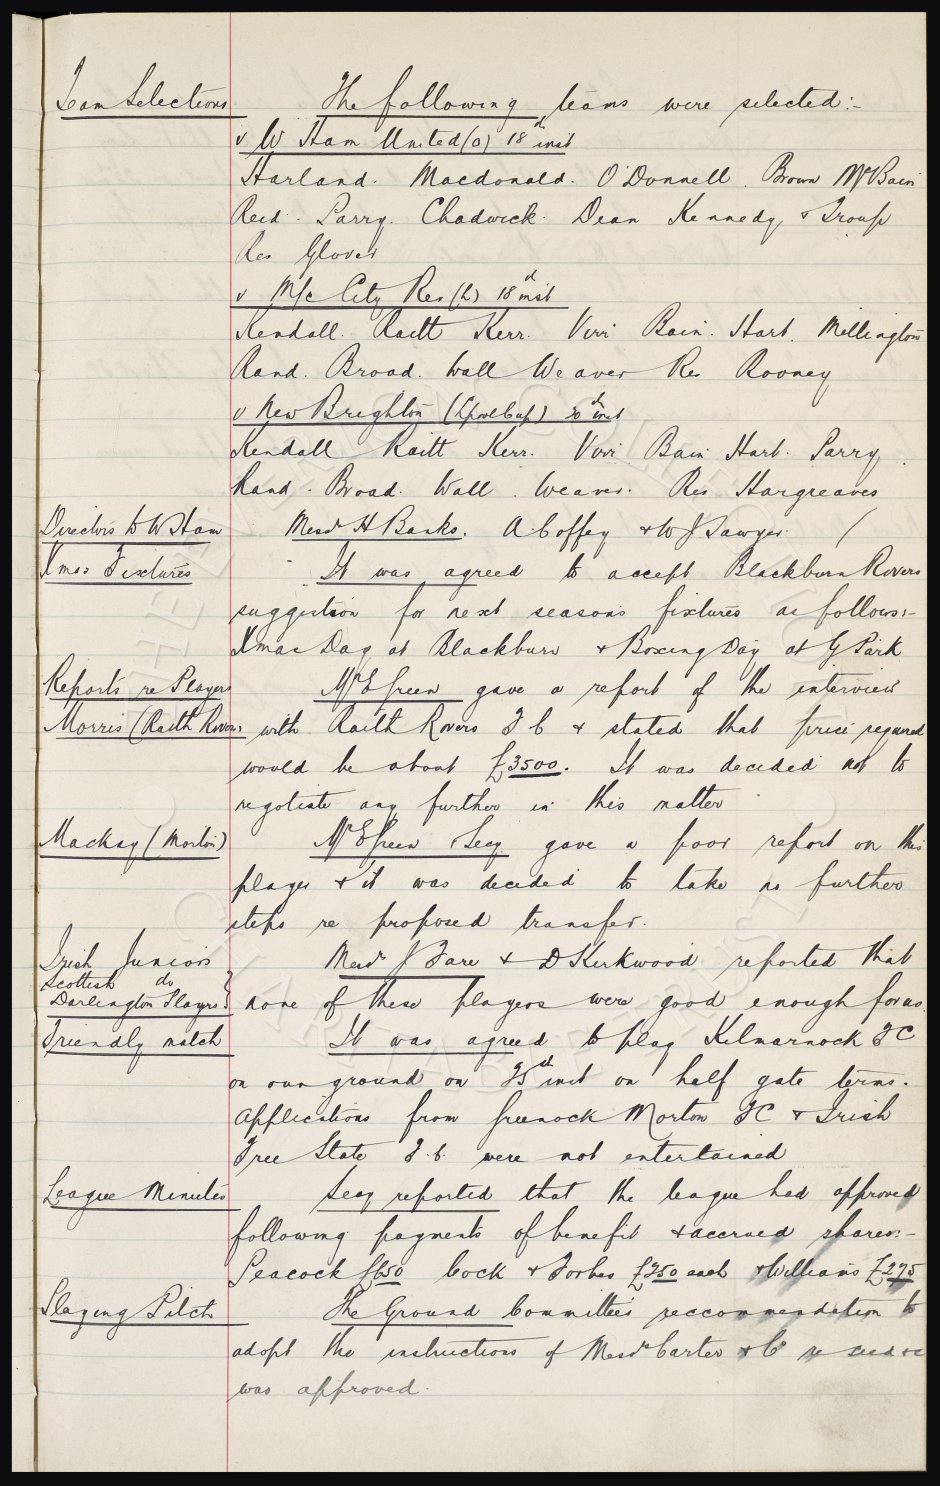 Team Selections The following teams were selected:-
v W Ham United (a) 18th inst
Harland. Macdonald. O'Donnell. Brown McBain
Reid. Parry. Chadwick. Dean Kennedy & Troup
Res Glover
v M/c City Res (h) 18th inst
Kendall. Raitt Kerr. Virr Bain. Hart. Millington
Rand. Broad. Wall Weaver Res Rooney
v New Brighton (Lpool Cup) 20th inst
Kendall Raitt Kerr. Virr Bain Hart. Parry
Rand. Broad. Wall. Weaver. Res Hargreaves
Directors to W Ham Messrs H Banks. A Coffey & W J Sawyer
Xmas Fixtures It was agreed to accept Blackburn Rovers
suggestion for next seasons fixtures as follows:-
Xmas Day at Blackburn & Boxing Day at G Park
Reports re Players Mr E Green gave a report of the interview
Morris (Raith Rovers) with Raith Rovers F C & stated that price required
would be about £3500. It was decided not to
negotiate any further in this matter
Mackay (Morton) Mr E Green & Secy gave a poor report on this
player & it was decided to take no further
steps re proposed transfer.
Irish Juniors Messrs J Fare & D Kirkwood reported that
Scottish do
Darlington Players } none of these players were good enough for us.
Friendly match It was agreed to play Kilmarnock FC
on our ground on 25th inst on half gate terms.
Applications from Greenock Morton FC & Irish
Free State F.C. were not entertained
League Minutes Secy reported that the League had approved
following payments of benefit & accrued shares:-
Peacock £650 Cock & Forbes £350 each & Williams £275
Playing Pitch The Ground Committee's reccommendation to
adopt the instructions of Messrs Carter & Co re seed &c
was approved.